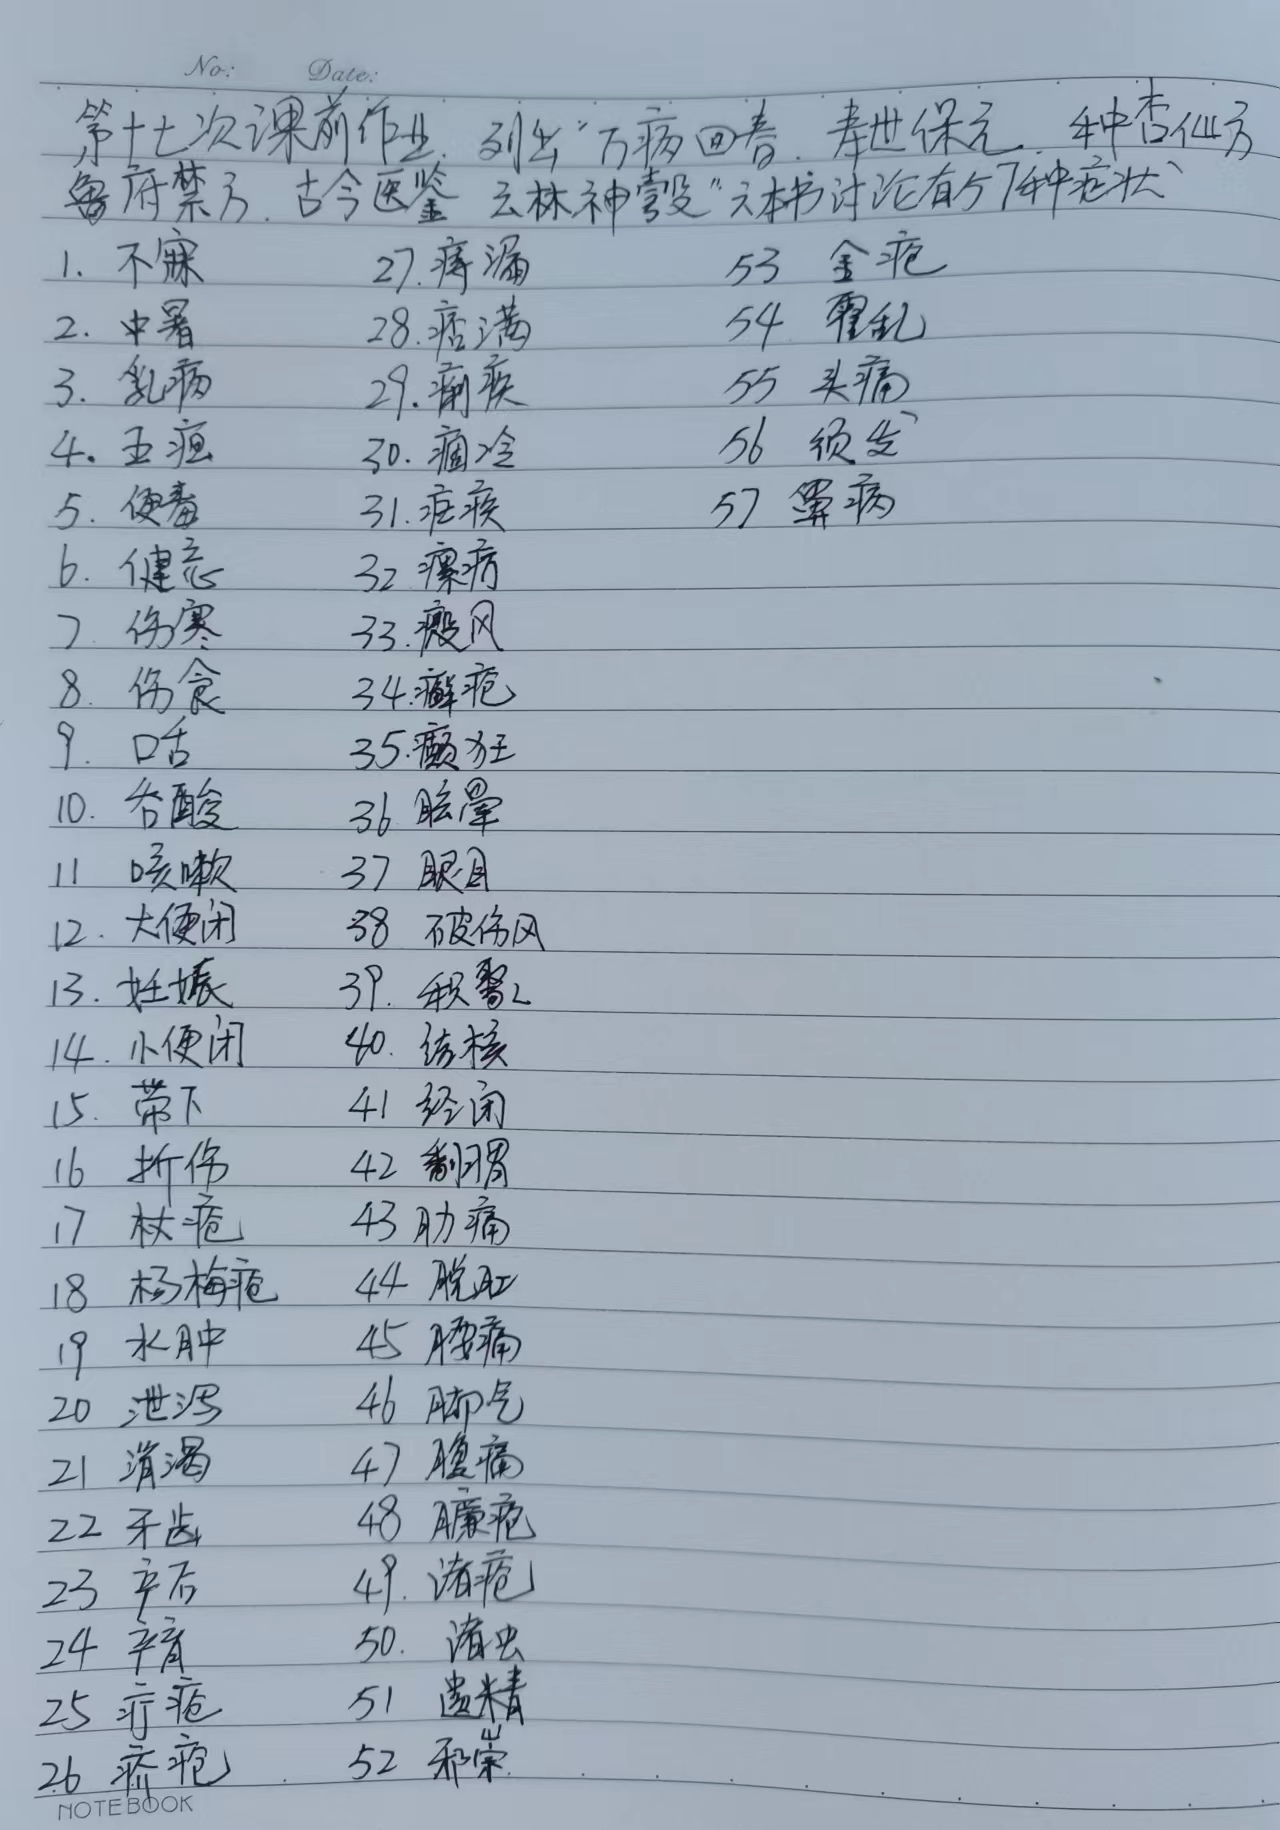 No: Date:
第十七次课前作业、列出“万病回春、寿世保元、种杏仙方
鲁府禁方、古今医鉴 云林神彀”六本书讨论有57种症状
1. 不寐
2. 中暑
3. 乳病
4. 五疸
5. 便毒
6. 健忘
7. 伤寒
8. 伤食
9. 口舌
10. 吞酸
11 咳嗽
12. 大便闭
13. 妊娠
14. 小便闭
15. 带下
16 折伤
17 杖疮
18 杨梅疮
19 水肿
20 泄泻
21 消渴
22 牙齿
23 产后
24 产育
25 疔疮
26 疥疮
27. 痔漏
28. 痞满
29. 痢疾
30. 痼冷
31. 痰
32 瘰疬
33. 癜风
34. 癣疮
35. 癫狂
36 眩晕
37 眼目
38 破伤风
39. 积聚
40. 结核
41 经闭
42 翻胃
43 肋痛
44 脱肛
45 腰痛
46 脚气
47 腹痛
48 臁疮
49. 诸疮
50. 诸虫
51 遗精
52 邪祟
53 金疮
54 霍乱
55 头痛
56 须发
57 鼻病
NOTEBOOK